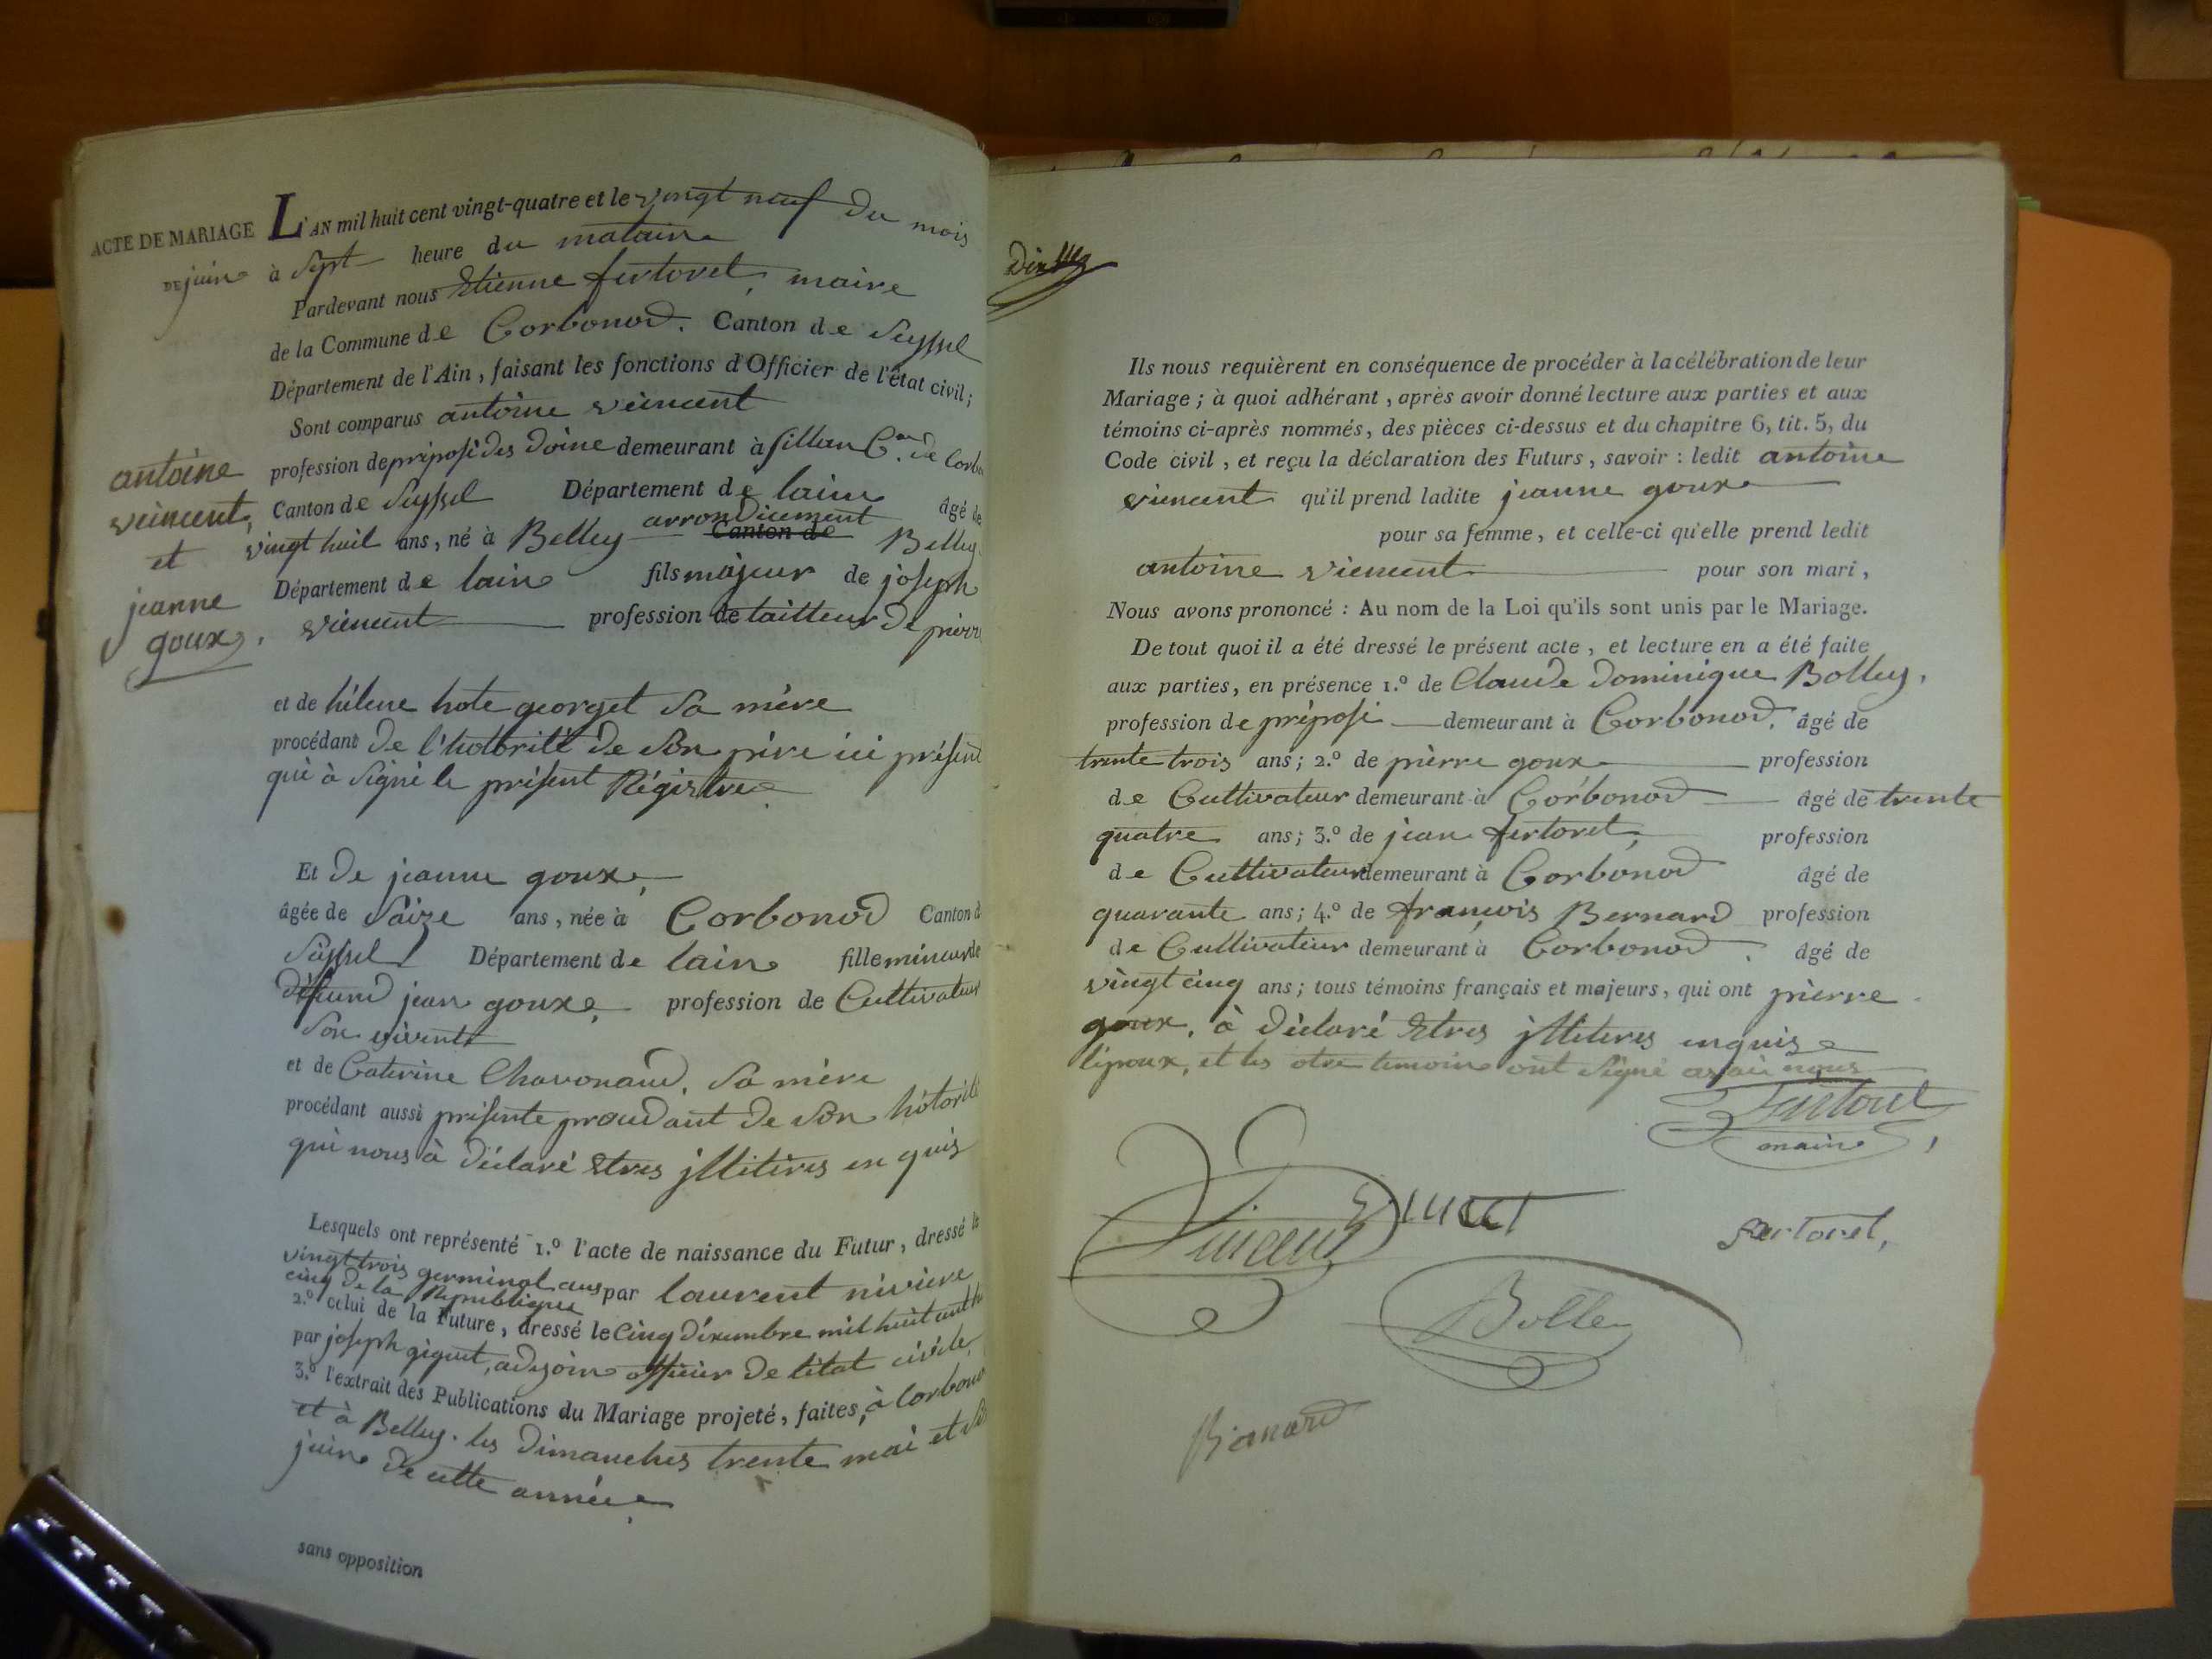 ACTE DE MARIAGE L'AN mil huit cent vingt-quatre et le vingt neuf du mois
DE juin à sept heure du mataine
Pardevant nous Etienne fertoret, maire
de la Commune de Corbonod. Canton de Seyssel
Département de l'Ain, faisant les fonctions d'Officier de l'état civil;
Sont comparus antoine veincent
profession de préposé des doine demeurant à sillan C.ne de Corbo
Canton de Seyssel Département de lain âgé de
vingt huit ans, né à Belley arrondicement Canton de Belley
Département de lain fils majeur de joseph
viencent profession de tailleur de pierre
antoine
veincent,
et
jeanne
goux.
et de hélene hote georget sa mère
procédant de l'hotorité de son père ici présent
qui à signé le présent Régistre
Et de jeanne goux,
âgée de saize ans, née à Corbonod Canton d
Seyssel Département de lain fille mineur de
défund jean goux, profession de Cultivateur
son vivent
et de Caterine Chavonand, sa mère
procédant aussi présente proudant de son hotorité
qui nous à déclaré Etres jllitéres en quis
Lesquels ont représenté 1.º l'acte de naissance du Futur, dressé le
vingt trois germinal ans par laurent nivière
cinq de la République
2.º celui de la Future, dressé le Cinq désembre mil huit cent h
par joseph giguet, adejoin officier de létat civile,
3.º l'extrait des Publications du Mariage projeté, faites, à Corbono
et à Belley. les dimanches trente mai et si
juin de cette année
sans opposition
Ils nous requièrent en conséquence de procéder à la célébration de leur
Mariage; à quoi adhérant, après avoir donné lecture aux parties et aux
témoins ci-après nommés, des pièces ci-dessus et du chapitre 6, tit. 5, du
Code civil, et reçu la déclaration des Futurs, savoir: ledit antoine
viencent qu'il prend ladite jeanne goux
pour sa femme, et celle-ci qu'elle prend ledit
antoine viencent pour son mari,
Nous avons prononcé: Au nom de la Loi qu'ils sont unis par le Mariage.
De tout quoi il a été dressé le présent acte, et lecture en a été faite
aux parties, en présence 1.º de Claude dominique Bolley,
profession de préposé demeurant à Corbonod. âgé de
trente trois ans; 2.º de pierre goux profession
de Cultivateur demeurant à Corbonod âgé de trente
quatre ans; 3.º de jean fertoret, profession
de Cultivateur demeurant à Corbonod âgé de
quarante ans; 4.º de françois Bernard profession
de Cultivateur demeurant à Corbonod. âgé de
vingt cinq ans; tous témoins français et majeurs, qui ont pierre
goux, à déclaré Etres jlliteres enquis
lépoux, et les otre temoins ont signé avaic nous
Fertoret
maire
Vincent
fertoret,
Bolley